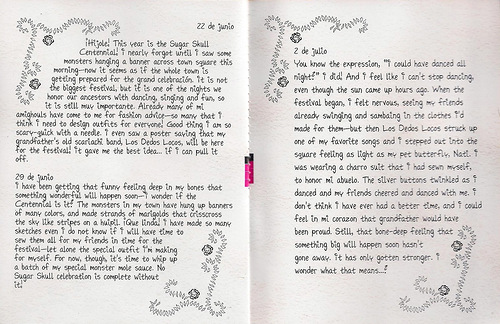 22 de junio
¡Híjole! This year is the Sugar Skull
Centennial! i nearly forgot until i saw some
monsters hanging a banner across town square this
morning—now it seems as if the whole town is
getting prepared for the grand celebración. it is not
the biggest festival, but it is one of the nights we
honor our ancestors with dancing, singing and fun, so
it is still muy importante. Already many of mi
amighouls have come to me for fashion advice—so many that i
think i need to design outfits for everyone! Good thing i am so
scary-quick with a needle. i even saw a poster saying that my
grandfather's old scariachi band, Los Dedos Locos, will be here
for the festival! it gave me the best idea... if i can pull it
off.
29 de junio
i have been getting that funny feeling deep in my bones that
something wonderful will happen soon—i wonder if the
Centennial is it! The monsters in my town have hung up banners
of many colors, and made strands of marigolds that crisscross
the sky like stripes on a huipil. ¡Que linda! i have made so many
sketches even i do not know if i will have time to
sew them all for my friends in time for the
festival—let alone the special outfit i'm making
for myself. For now, though, it's time to whip up
a batch of my special monster mole sauce. No
Sugar Skull celebration is complete without
it!
2 de julio
You know the expression, "i could have danced all
night?" i did! And i feel like i can't stop dancing,
even though the sun came up hours ago. When the
festival began, i felt nervous, seeing my friends
already swinging and sambaing in the clothes i'd
made for them—but then Los Dedos Locos struck up
one of my favorite songs and i stepped out into the
square feeling as light as my pet butterfly, Nati. i
was wearing a charro suit that i had sewn myself,
to honor mi abuelo. The silver buttons twinkled as i
danced and my friends cheered and danced with me. i
don't think i have ever had a better time, and i could
feel in mi corazon that grandfather would have
been proud. Still, that bone-deep feeling that
something big will happen soon hasn't
gone away. it has only gotten stronger. i
wonder what that means...?